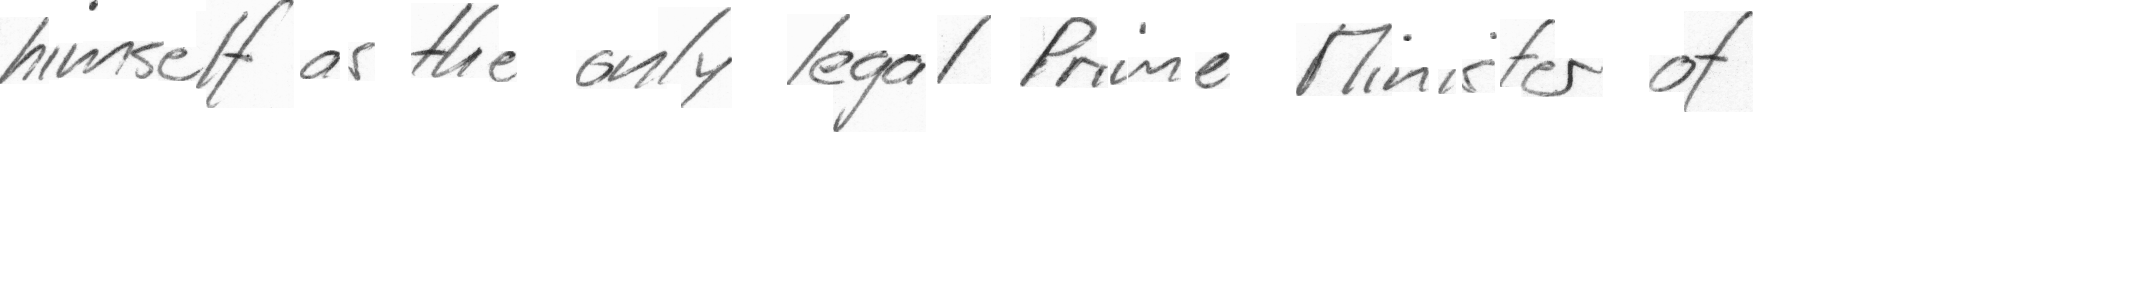 himself as the only legal Prime Minister of